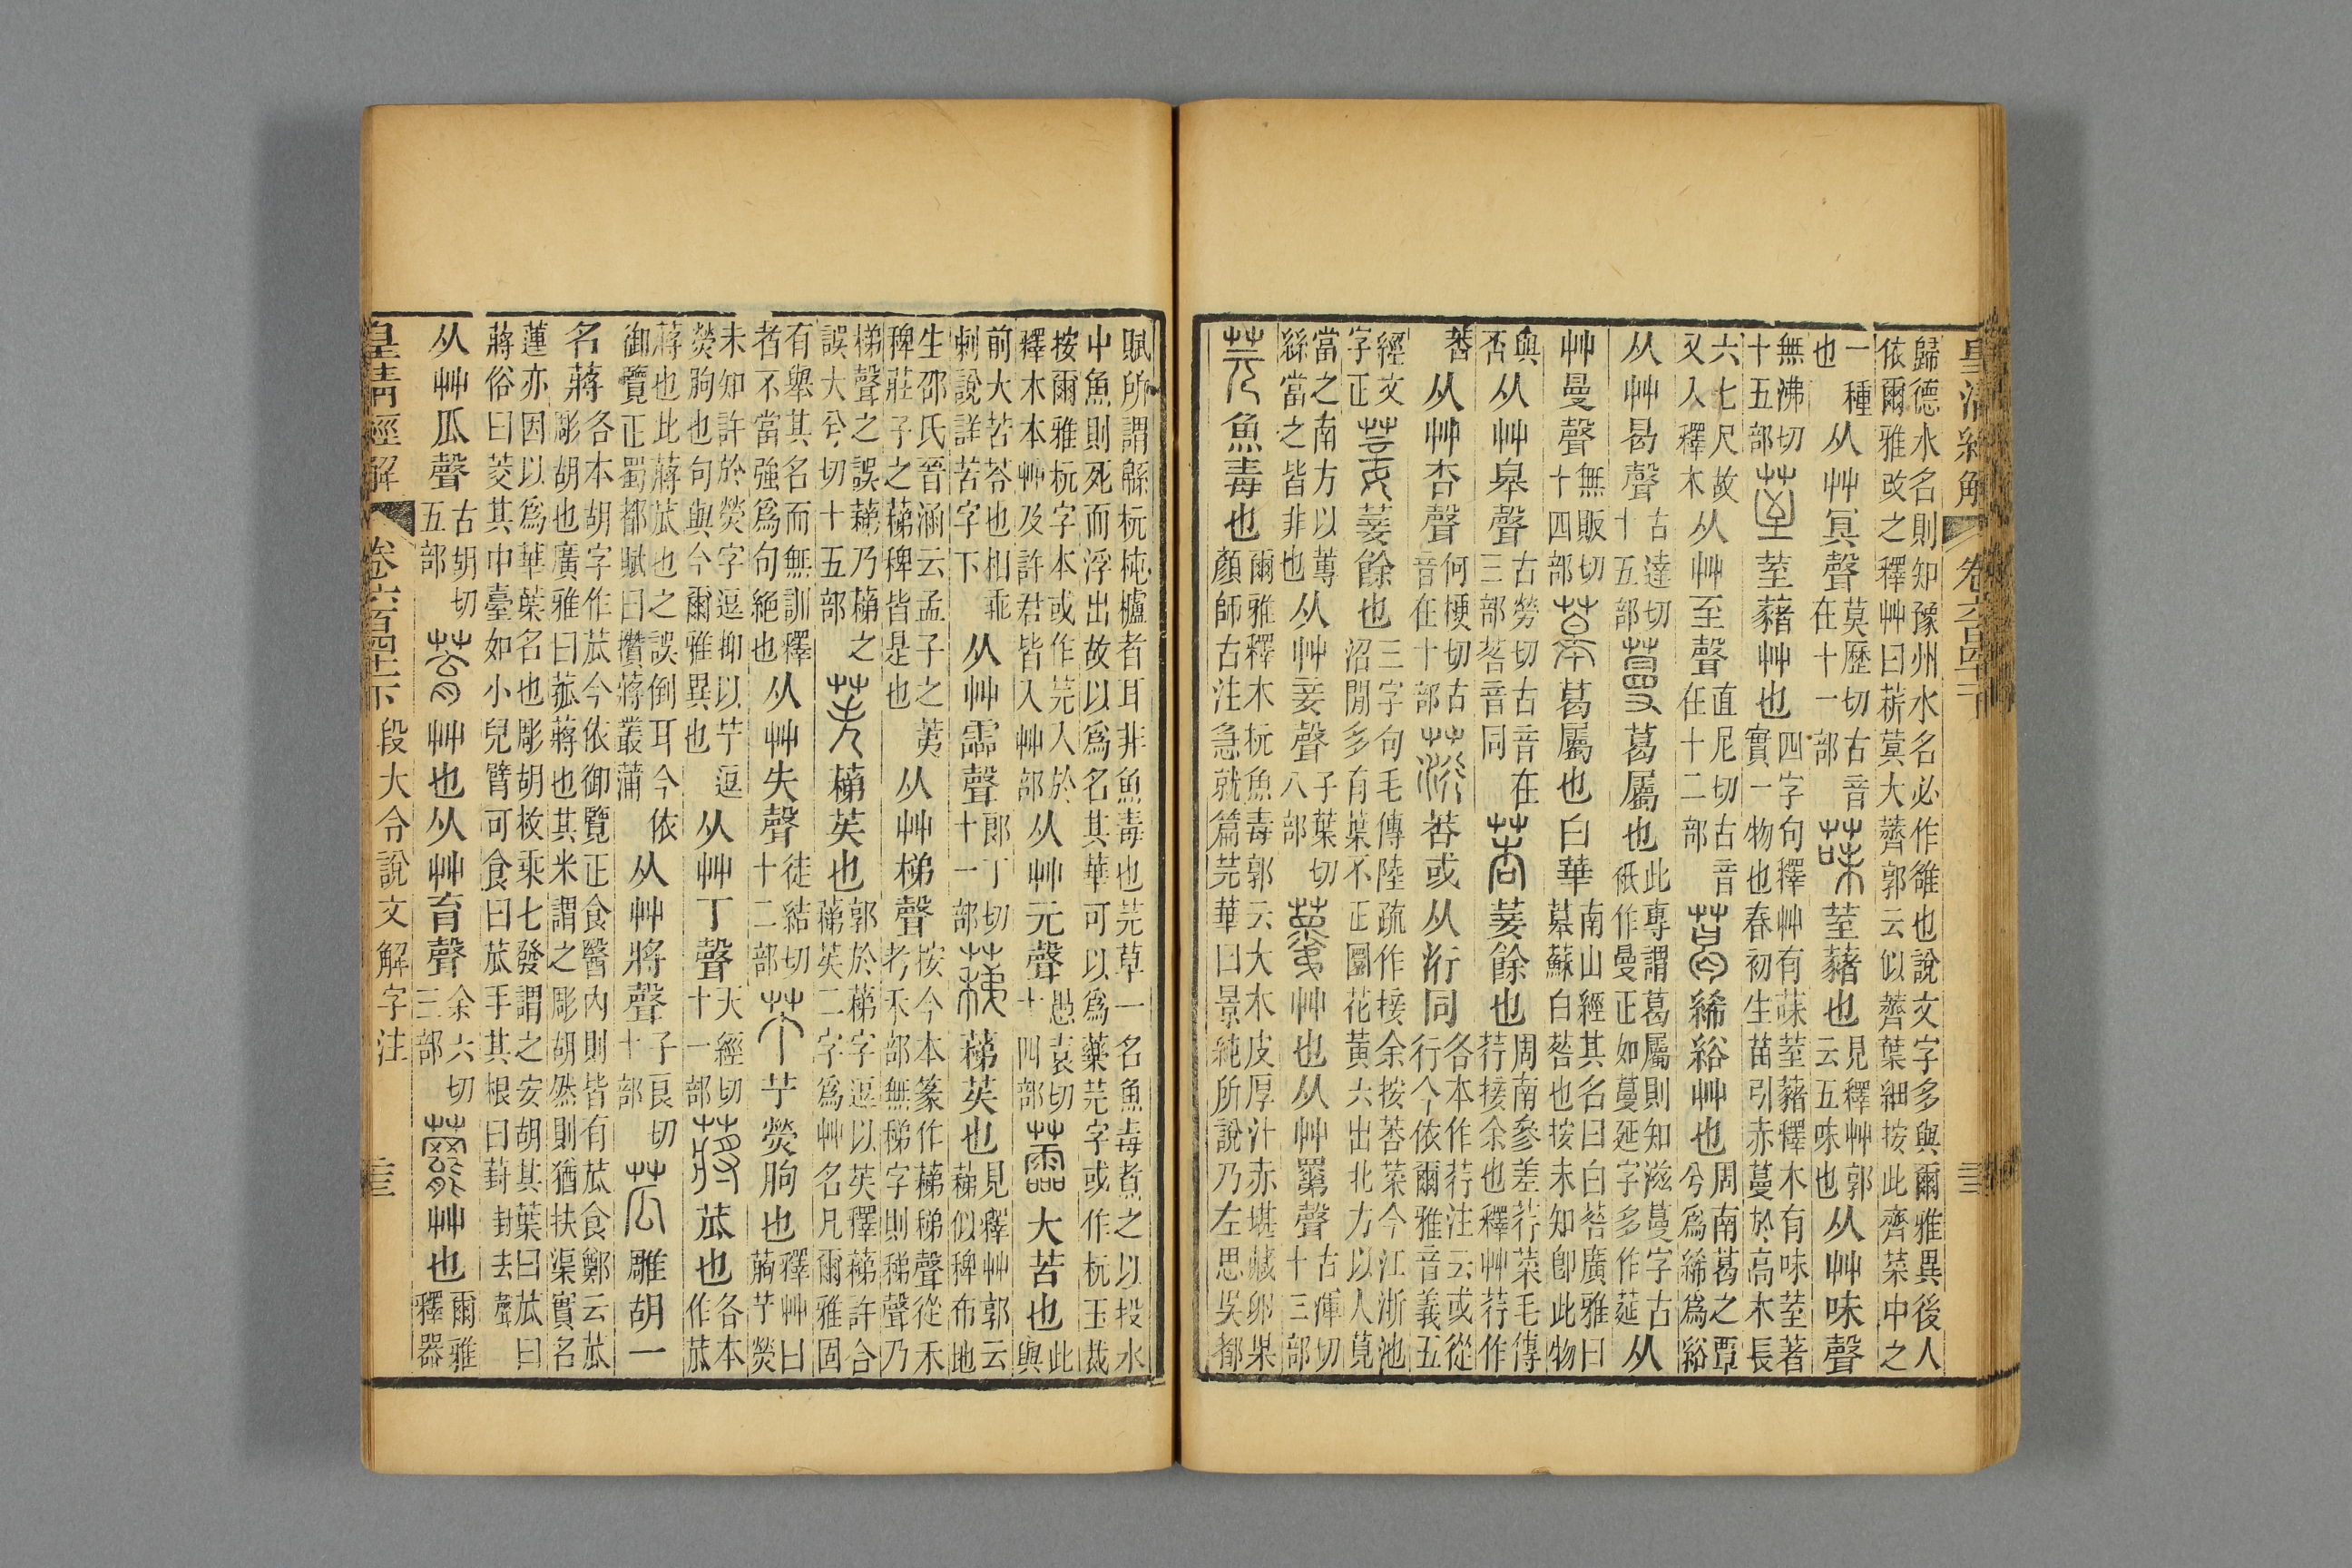 皇清經解 卷六百四十一下 三十三
歸德水名則知豫州水名必作雒也說文字多與爾雅異後人
依爾雅改之釋艸曰菥蓂大薺郭云似薺葉細按此薺菜中之
一種也从艸冥聲莫歷切古音在十一部菋荎藸也見釋艸郭云五味也从艸味聲
無沸切十五部荎荎藸艸也四字句釋艸有菋荎藸釋木有味荎著實一物也春初生苗引赤蔓於高木長
六七尺故又入釋木从艸至聲直尼切古音在十二部葛絺綌艸也周南葛之覃兮爲絺爲綌
从艸曷聲古達切十五部蔓葛屬也此專謂葛屬則知滋蔓字古秖作曼正如蔓延字多作莚从
艸曼聲無販切十四部葛屬也白華南山經其名曰白䓘廣雅曰慕蘇白䓘也按未知卽此物
與否从艸皋聲古勞切古音在三部䓘音同莕菨餘也周南參差荇菜毛傳荇接余也釋艸荇作
莕从艸杏聲何梗切古音在十部莕或从洐同各本作荇注云或從行今依爾雅音義五
經文字正菨菨餘也三字句毛傳陸疏作接余按莕菜今江浙池沼閒多有葉不正圜花黃六出北方以人莧
當之南方以蓴絲當之皆非也从艸妾聲子葉切八部艸也从艸罤聲古渾切十三部
芫魚毒也爾雅釋木杬魚毒郭云大木皮厚汁赤堪藏卵果顏師古注急就篇芫華曰景純所說乃左思吳都
賦所謂緜杬杶櫨者耳非魚毒也芫草一名魚毒煮之以投水
中魚則死而浮出故以爲名其華可以爲藥芫字或作杬玉裁
按爾雅杬字本或作芫入於釋木本艸及許君皆入艸部从艸元聲愚袁切十四部蘦大苦也此與
前大苦苓也相乖剌說詳苦字下从艸霝聲郎丁切十一部蕛蕛苵也見釋艸郭云蕛似稗布地
生邵氏晉涵云孟子之荑稗莊子之蕛稗皆是也从艸梯聲按今本篆作蕛稊聲從禾考禾部無稊字則稊聲乃
梯聲之誤蕛乃蕛之誤大兮切十五部苵蕛苵也郭於蕛字逗以苵釋蕛許合蕛苵二字爲艸名凡爾雅固
有舉其名而無訓釋者不當強爲句絶也从艸失聲徒結切十二部艼艼熒朐也釋艸曰蒟艼熒
未知許於熒字逗抑以艼逗熒朐也句與今爾雅異也从艸丁聲天經切十一部蔣苽也各本作苽
蔣也此蔣苽也之誤倒耳今依御覽正蜀都賦曰攢蔣叢蒲从艸將聲子良切十部苽雕胡一
名蔣各本胡字作苽今依御覽正食醫內則皆有苽食鄭云苽彫胡也廣雅曰菰蔣也其米謂之彫胡然則猶扶渠實名
蓮亦因以爲華葉名也彫胡枚乘七發謂之安胡其葉曰苽曰蔣俗曰茭其中臺如小兒臂可食曰苽手其根曰葑葑去聲
从艸瓜聲古胡切五部艸也从艸育聲余六切三部艸也爾雅釋器
皇清經解 卷六百四十一下 段大令說文解字注 三十三